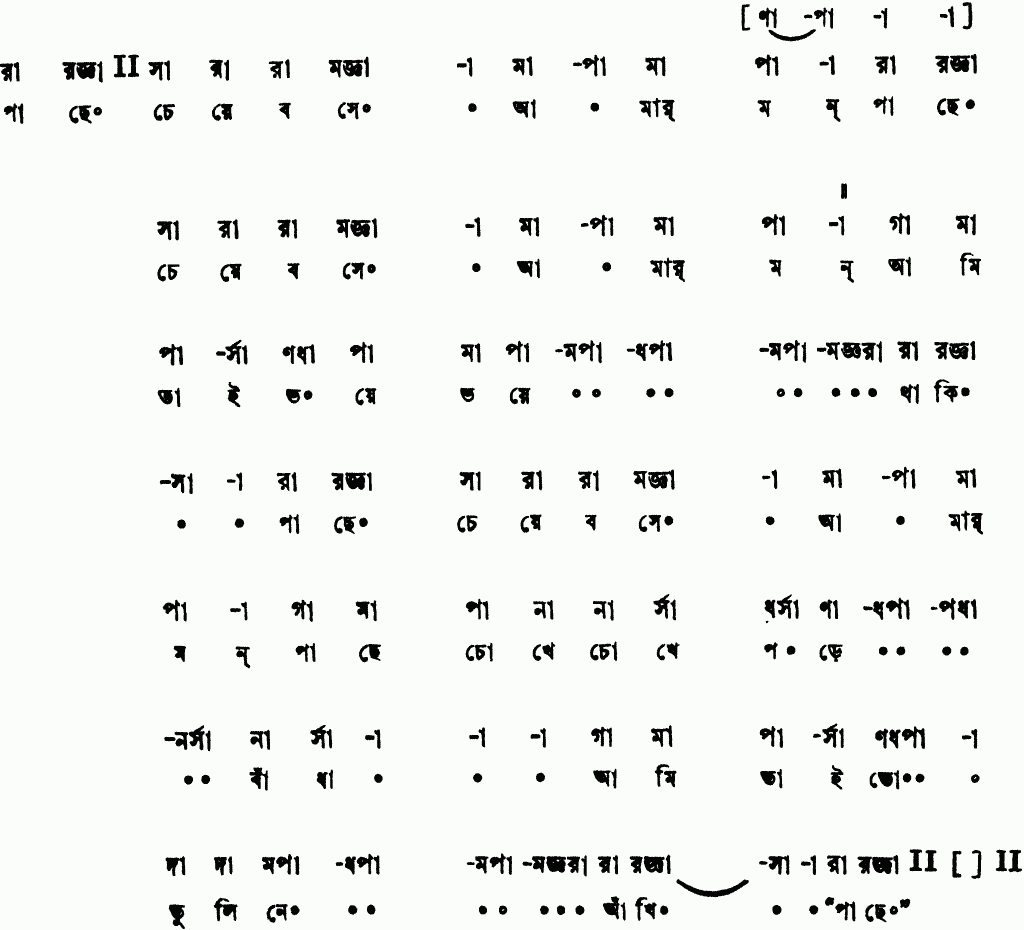 [ ণা -পা -া -া ]
রা রজ্ঞা II সা রা রা মজ্ঞা -া মা -পা মা পা -া রা রজ্ঞা
পা ছে॰ চে য়ে ব সে॰ • আ • মার্ ম ন্ পা ছে॰
॥
সা রা রা মজ্ঞা -া মা -পা মা পা -া গা মা
চে য়ে ব সে॰ • আ • মার্ ম ন্ আ মি
পা -র্সা ণধা পা মা পা -মপা -ধপা -মপা -মজ্ঞরা রা রজ্ঞা
তা ই ভ॰ য়ে ভ য়ে •• •• •• ••• থা কি॰
-সা -া রা রজ্ঞা সা রা রা মজ্ঞা -া মা -পা মা
• • পা ছে॰ চে য়ে ব সে॰ • আ • মার্
পা -া গা মা পা না না র্সা ধর্সা ণা -ধপা -পধা
ম ন্ পা ছে চো খে চো খে প॰ ড়ে •• ••
-নর্সা না র্সা -া -া -া গা মা পা -র্সা ণধপা -া
•• বাঁ ধা • • • আ মি তা ই তো॰॰ •
দা দা মপা -ধপা -মপা -মজ্ঞরা রা রজ্ঞা -সা -া রা রজ্ঞা II [ ] II
তু লি নে॰ •• •• ••• আঁ খি॰ • • “পা ছে॰”